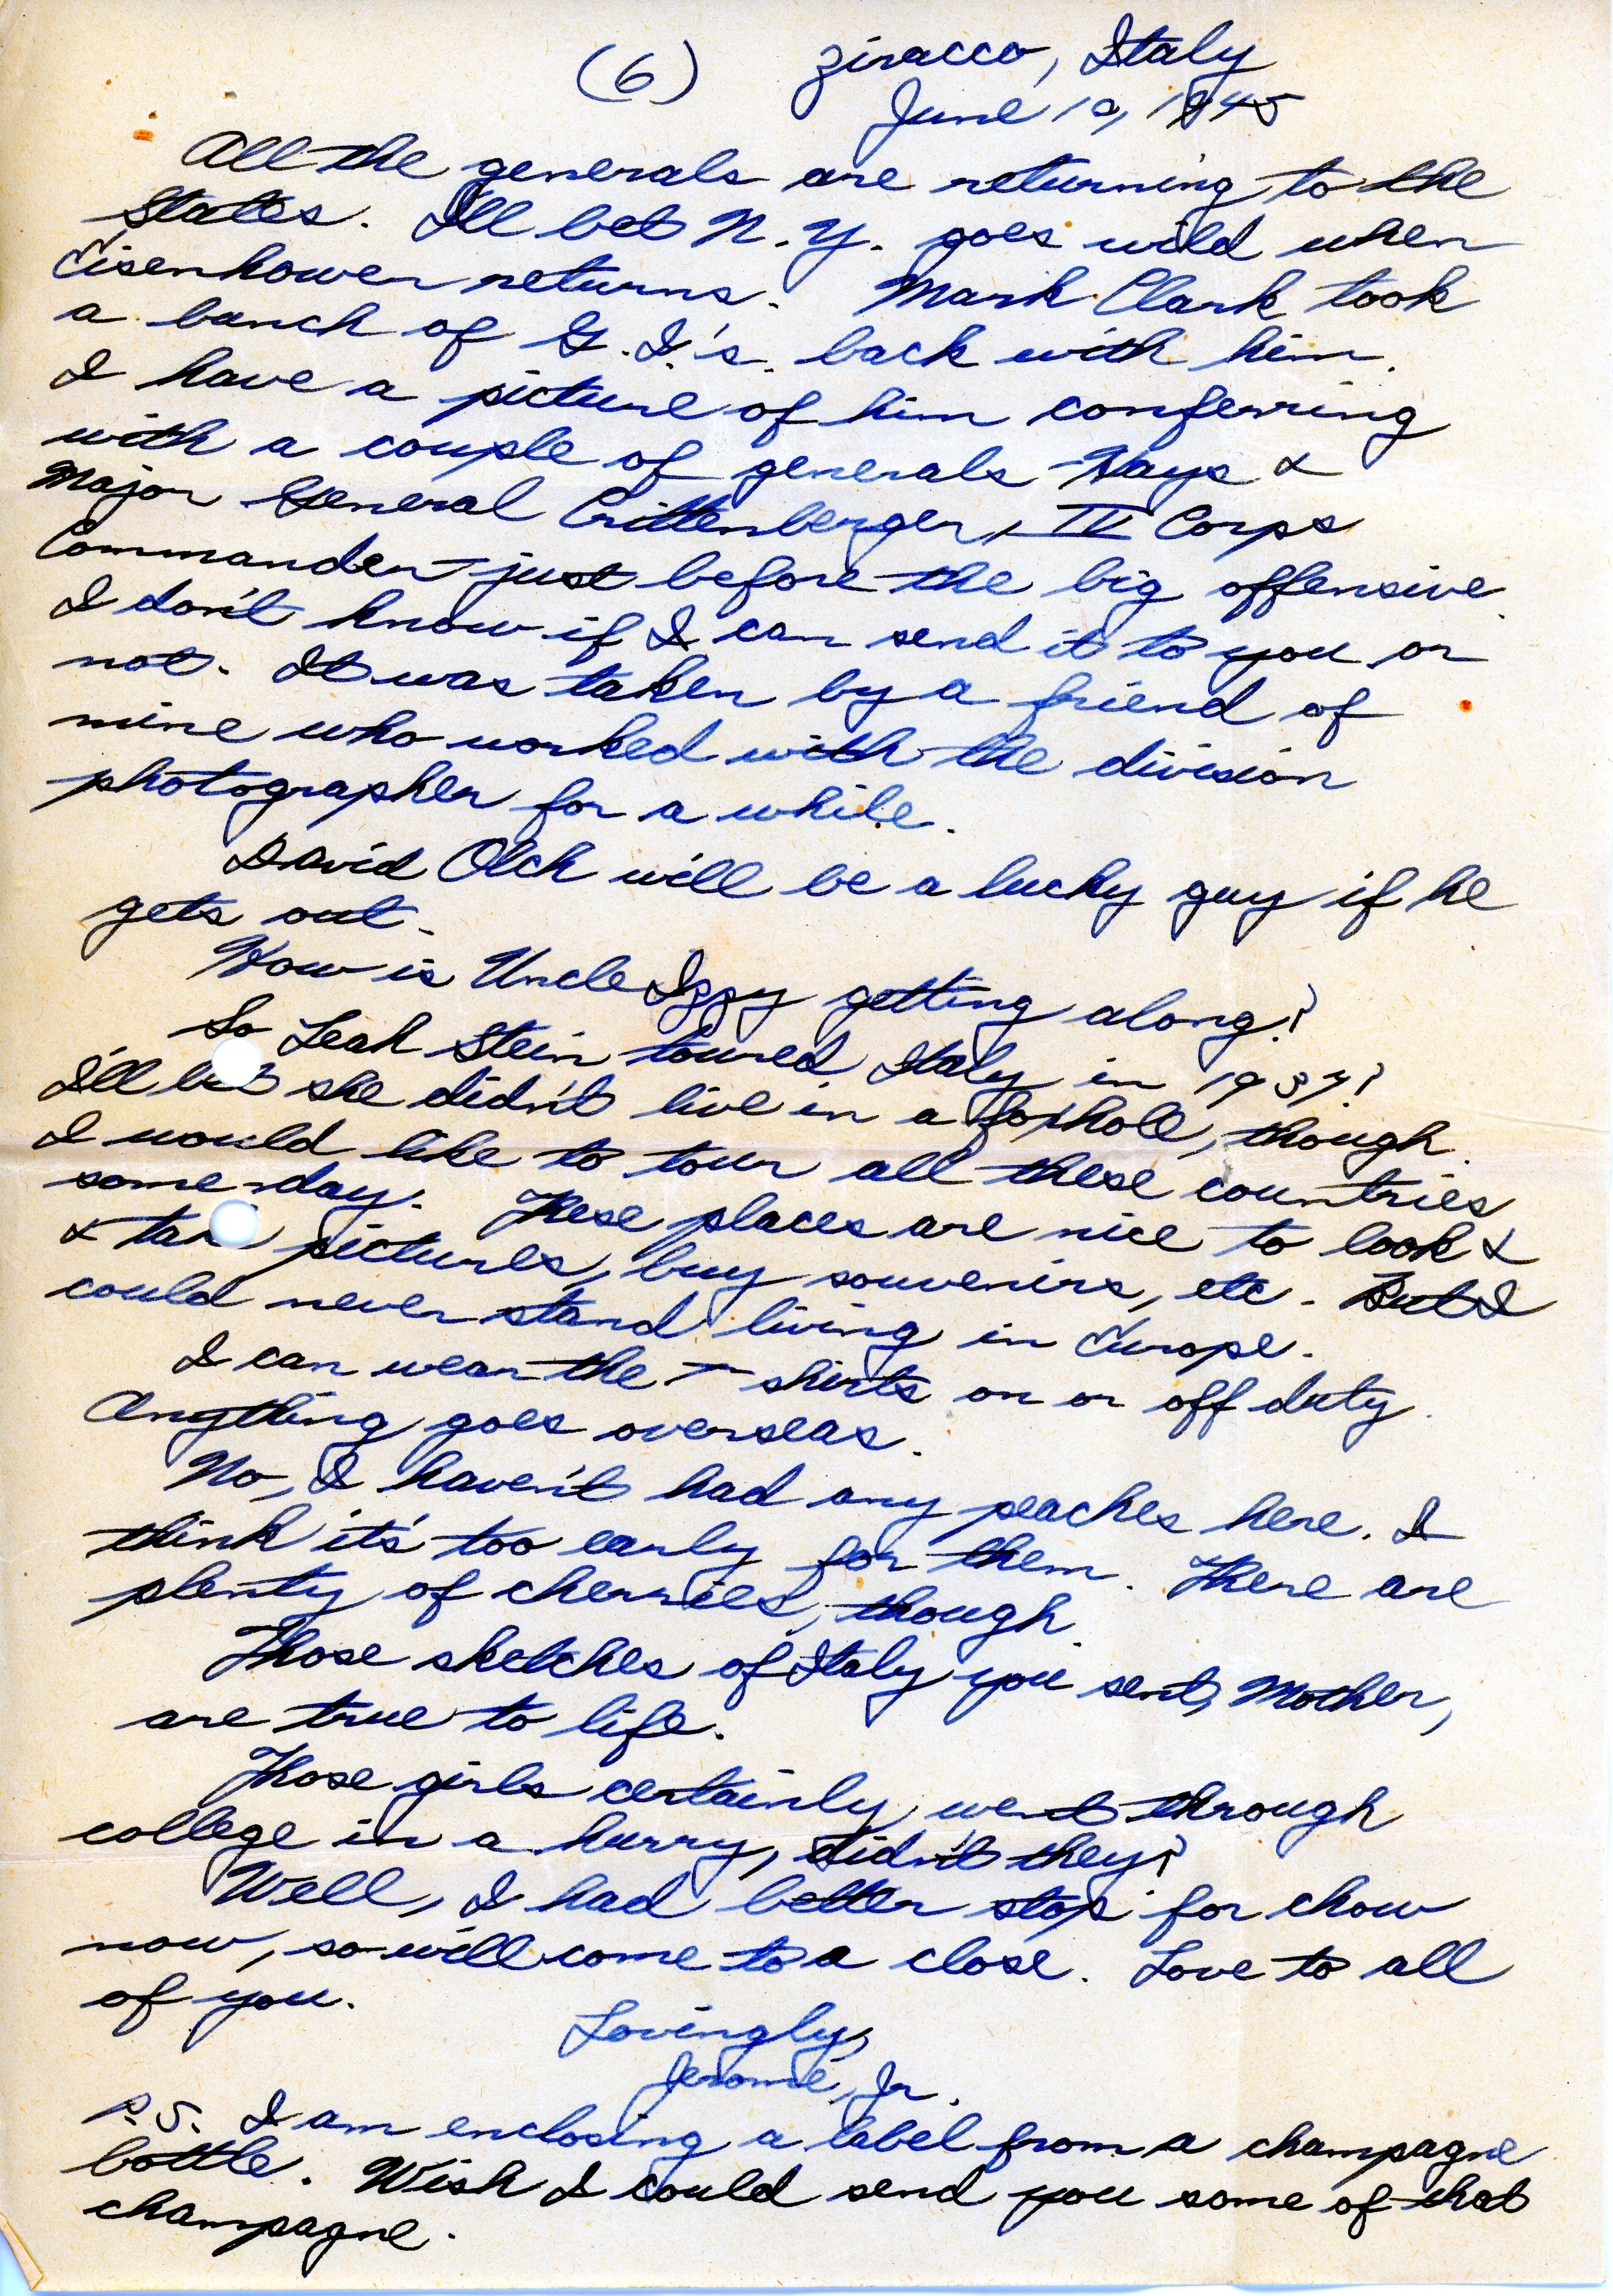 (6) Ziracco, Italy
June 10, 1945
All the generals are returning to the
States. I'll bet N.Y. goes wild when
Eisenhower returns. Mark Clark took
a bunch of G.I.'s. back with him.
I have a picture of him conferring
with a couple of generals - Hays &
Major General Crittenberger, IV Corps
Commander - just before the big offensive.
I don't know if I can send it to you or
not. It was taken by a friend of
mine who worked with the division
photographer for a while.
David Olch will be a lucky guy if he
gets out.
How is Uncle Izzy getting along?
So Leah Stein toured Italy in 1937?
I'll bet she didn't live in a foxhole, though.
I would like to tour all these countries
some day. These places are nice to look &
& take pictures, buy souvenirs, etc. But I
could never stand living in Europe.
I can wear the T-shirts on or off duty.
Anything goes overseas.
No, I haven't had any peaches here. I
think it's too early for them. There are
plenty of cherries, though.
Those sketches of Italy you sent, Mother,
are true to life.
Those girls certainly went through
college in a hurry, didn't they?
Well, I had better stop for chow
now, so will come to a close. Love to all
of you.
Lovingly,
Jerome, Jr.
P.S. I am enclosing a label from a champagne
bottle. Wish I could send you some of that
champagne.